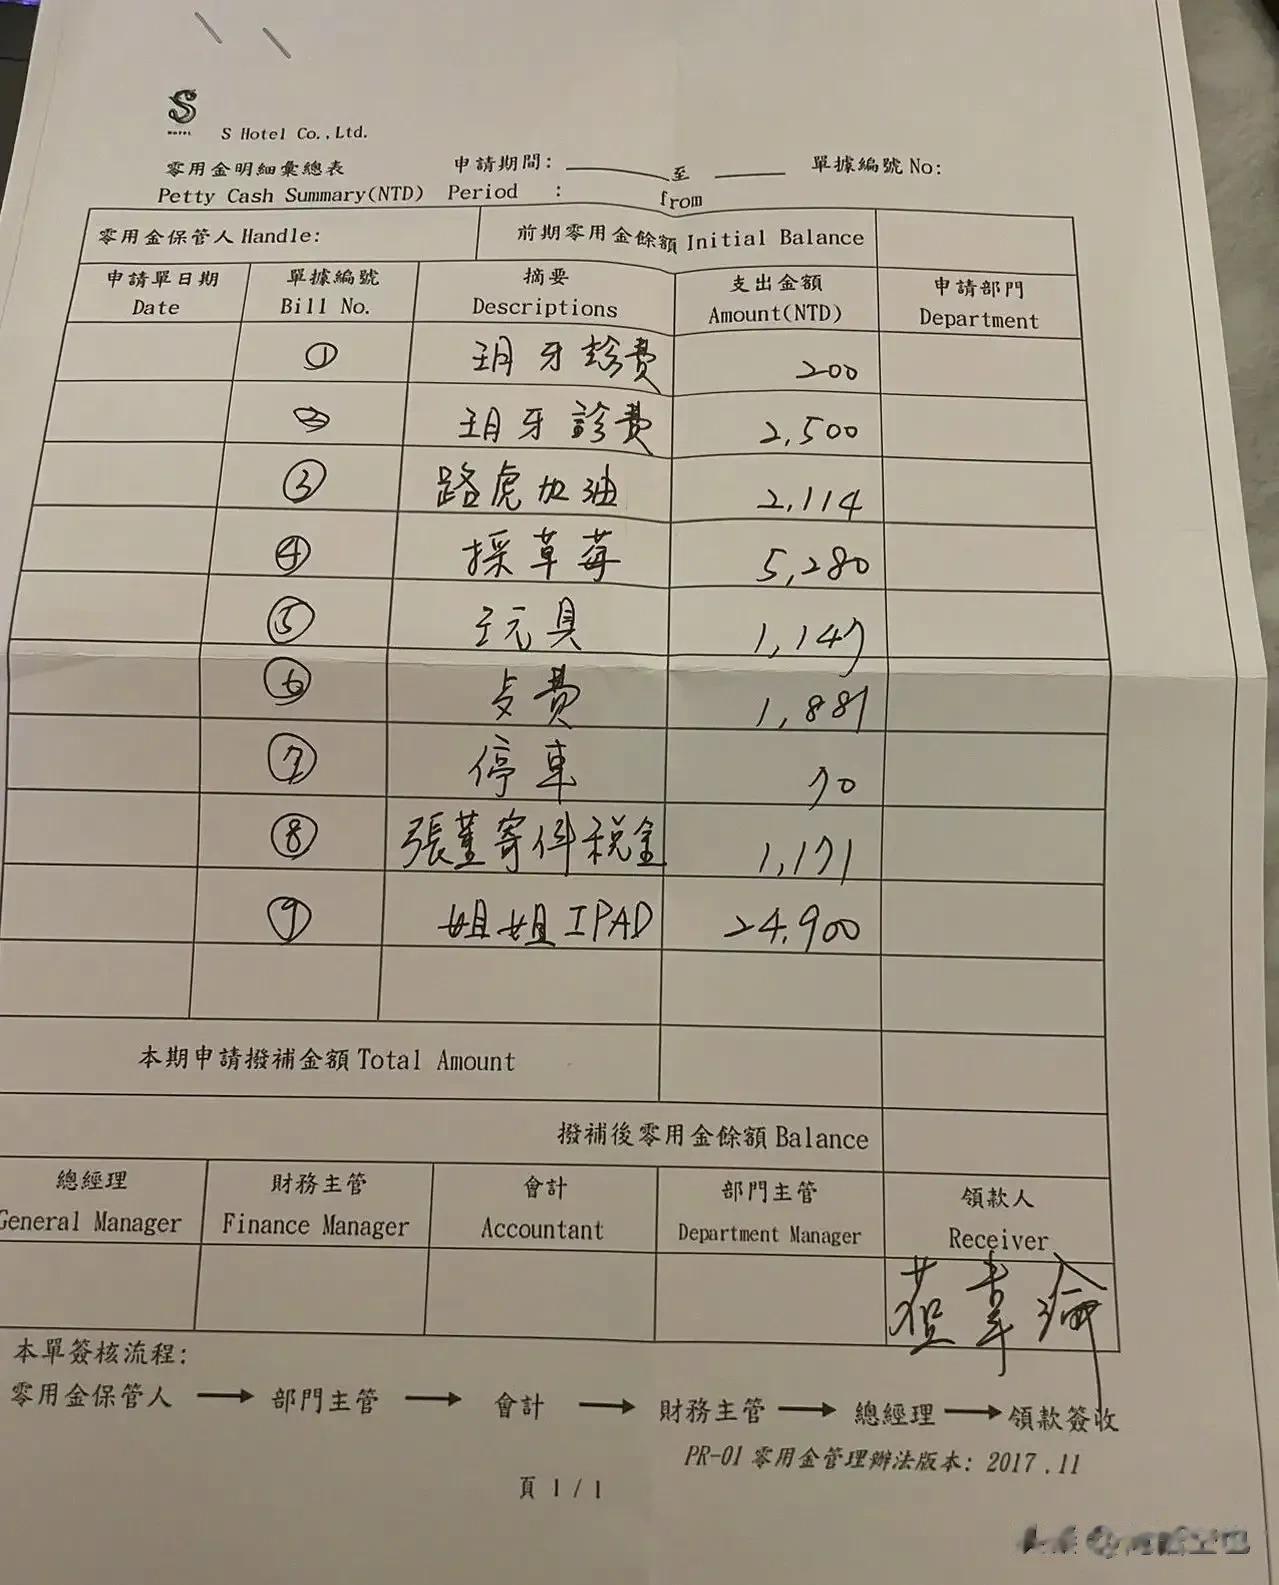 S
HOTEL
S Hotel Co.,Ltd.
零用金明細彙總表 申請期間: 至 單據編號 No:
Petty Cash Summary(NTD) Period : from
零用金保管人 Handle: 前期零用金餘額 Initial Balance
申請單日期 單據編號 摘要 支出金額 申請部門
Date Bill No. Descriptions Amount(NTD) Department
① 玥牙診費 200
② 玥牙診費 2,500
③ 路虎加油 2,114
④ 採草莓 5,280
⑤ 玩具 1,147
⑥ 費 1,881
⑦ 停車 70
⑧ 張董寄件稅金 1,171
⑨ 姐姐IPAD 24,900
本期申請撥補金額 Total Amount
撥補後零用金餘額 Balance
總經理 財務主管 會計 部門主管 領款人
General Manager Finance Manager Accountant Department Manager Receiver
本單簽核流程:
零用金保管人 → 部門主管 → 會計 → 財務主管 → 總經理 → 領款簽收
PR-01 零用金管理辦法版本: 2017 .11
頁 1 / 1